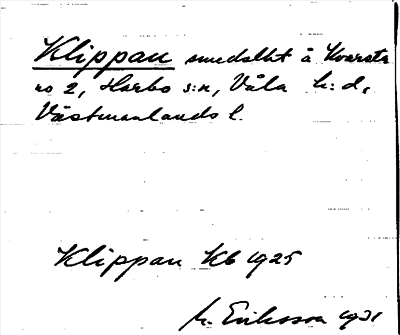 Klippan smedsllt å Kvarsta
no 2, Harbo s:n, Våla h:d,
Västmanlands l.
Klippan Kb 1925
M. Eriksson 1931